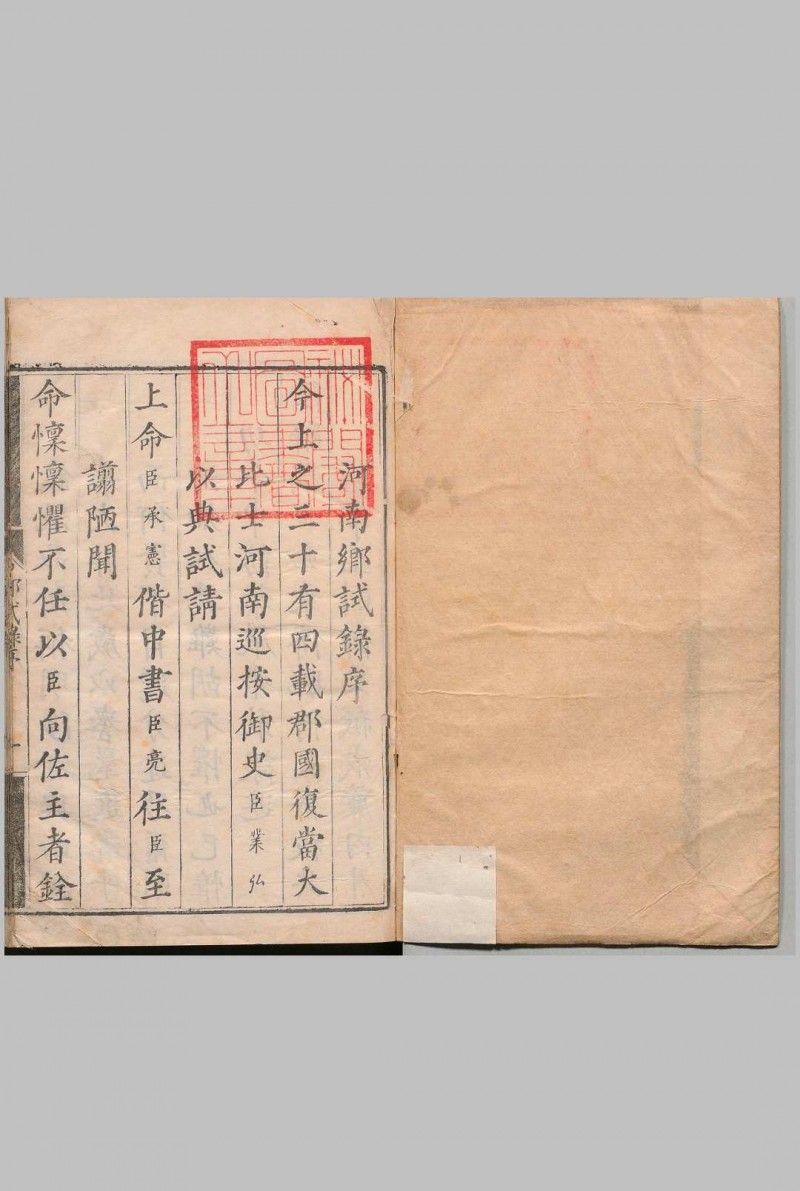 河南鄉試錄序
今上之三十有四載郡國復當大
比士河南巡按御史臣業弘
以典試請
上命臣承憲偕中書臣亮往臣至
謭陋聞
命懍懍懼不任以臣向佐主者銓